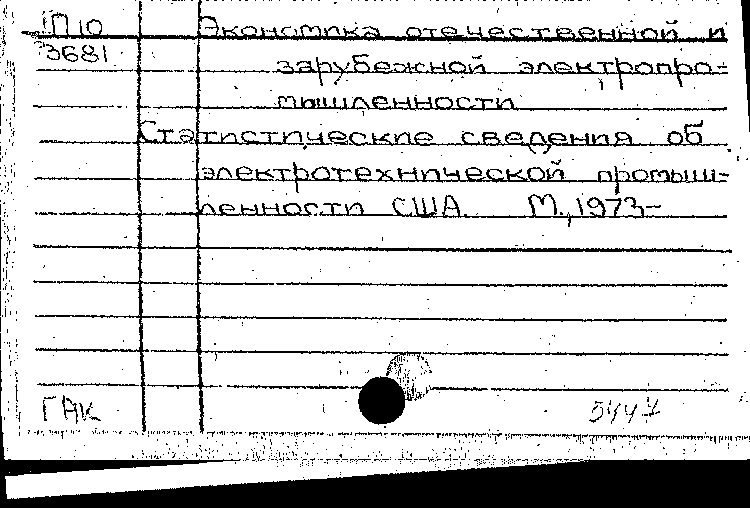 П10 Экономика отечественной и
3681 зарубежной электропро-
мышленности
Статистические сведения об
электротехнической промыш-
ленности США. М., 1973-
ГАК